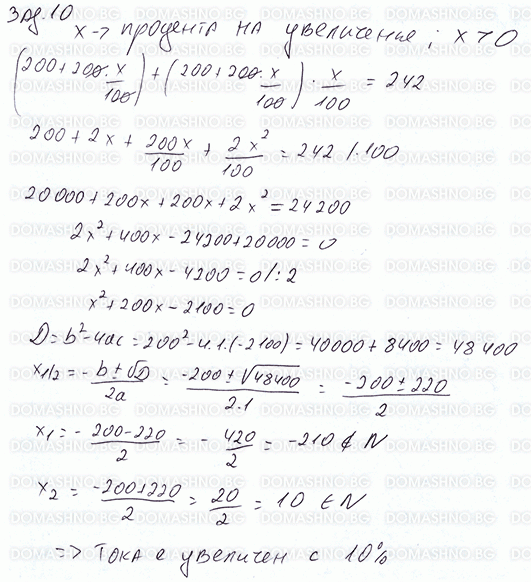 Зад. 10
x → процента на увеличение; x > 0
(200 + 200 . x/100) + (200 + 200 . x/100) . x/100 = 242
200 + 2x + 200x/100 + 2x²/100 = 242 /.100
20000 + 200x + 200x + 2x² = 24200
2x² + 400x - 24200 + 20000 = 0
2x² + 400x - 4200 = 0 /:2
x² + 200x - 2100 = 0
D = b² - 4ac = 200² - 4.1.(-2100) = 40000 + 8400 = 48400
x1/2 = -b ± √D/2a = -200 ± √48400/2.1 = -200 ± 220/2
x₁ = -200-220/2 = -420/2 = -210 ∉ N
x₂ = -200+220/2 = 20/2 = 10 ∈ N
=> Тока е увеличен с 10%
DOMASHNO.BG